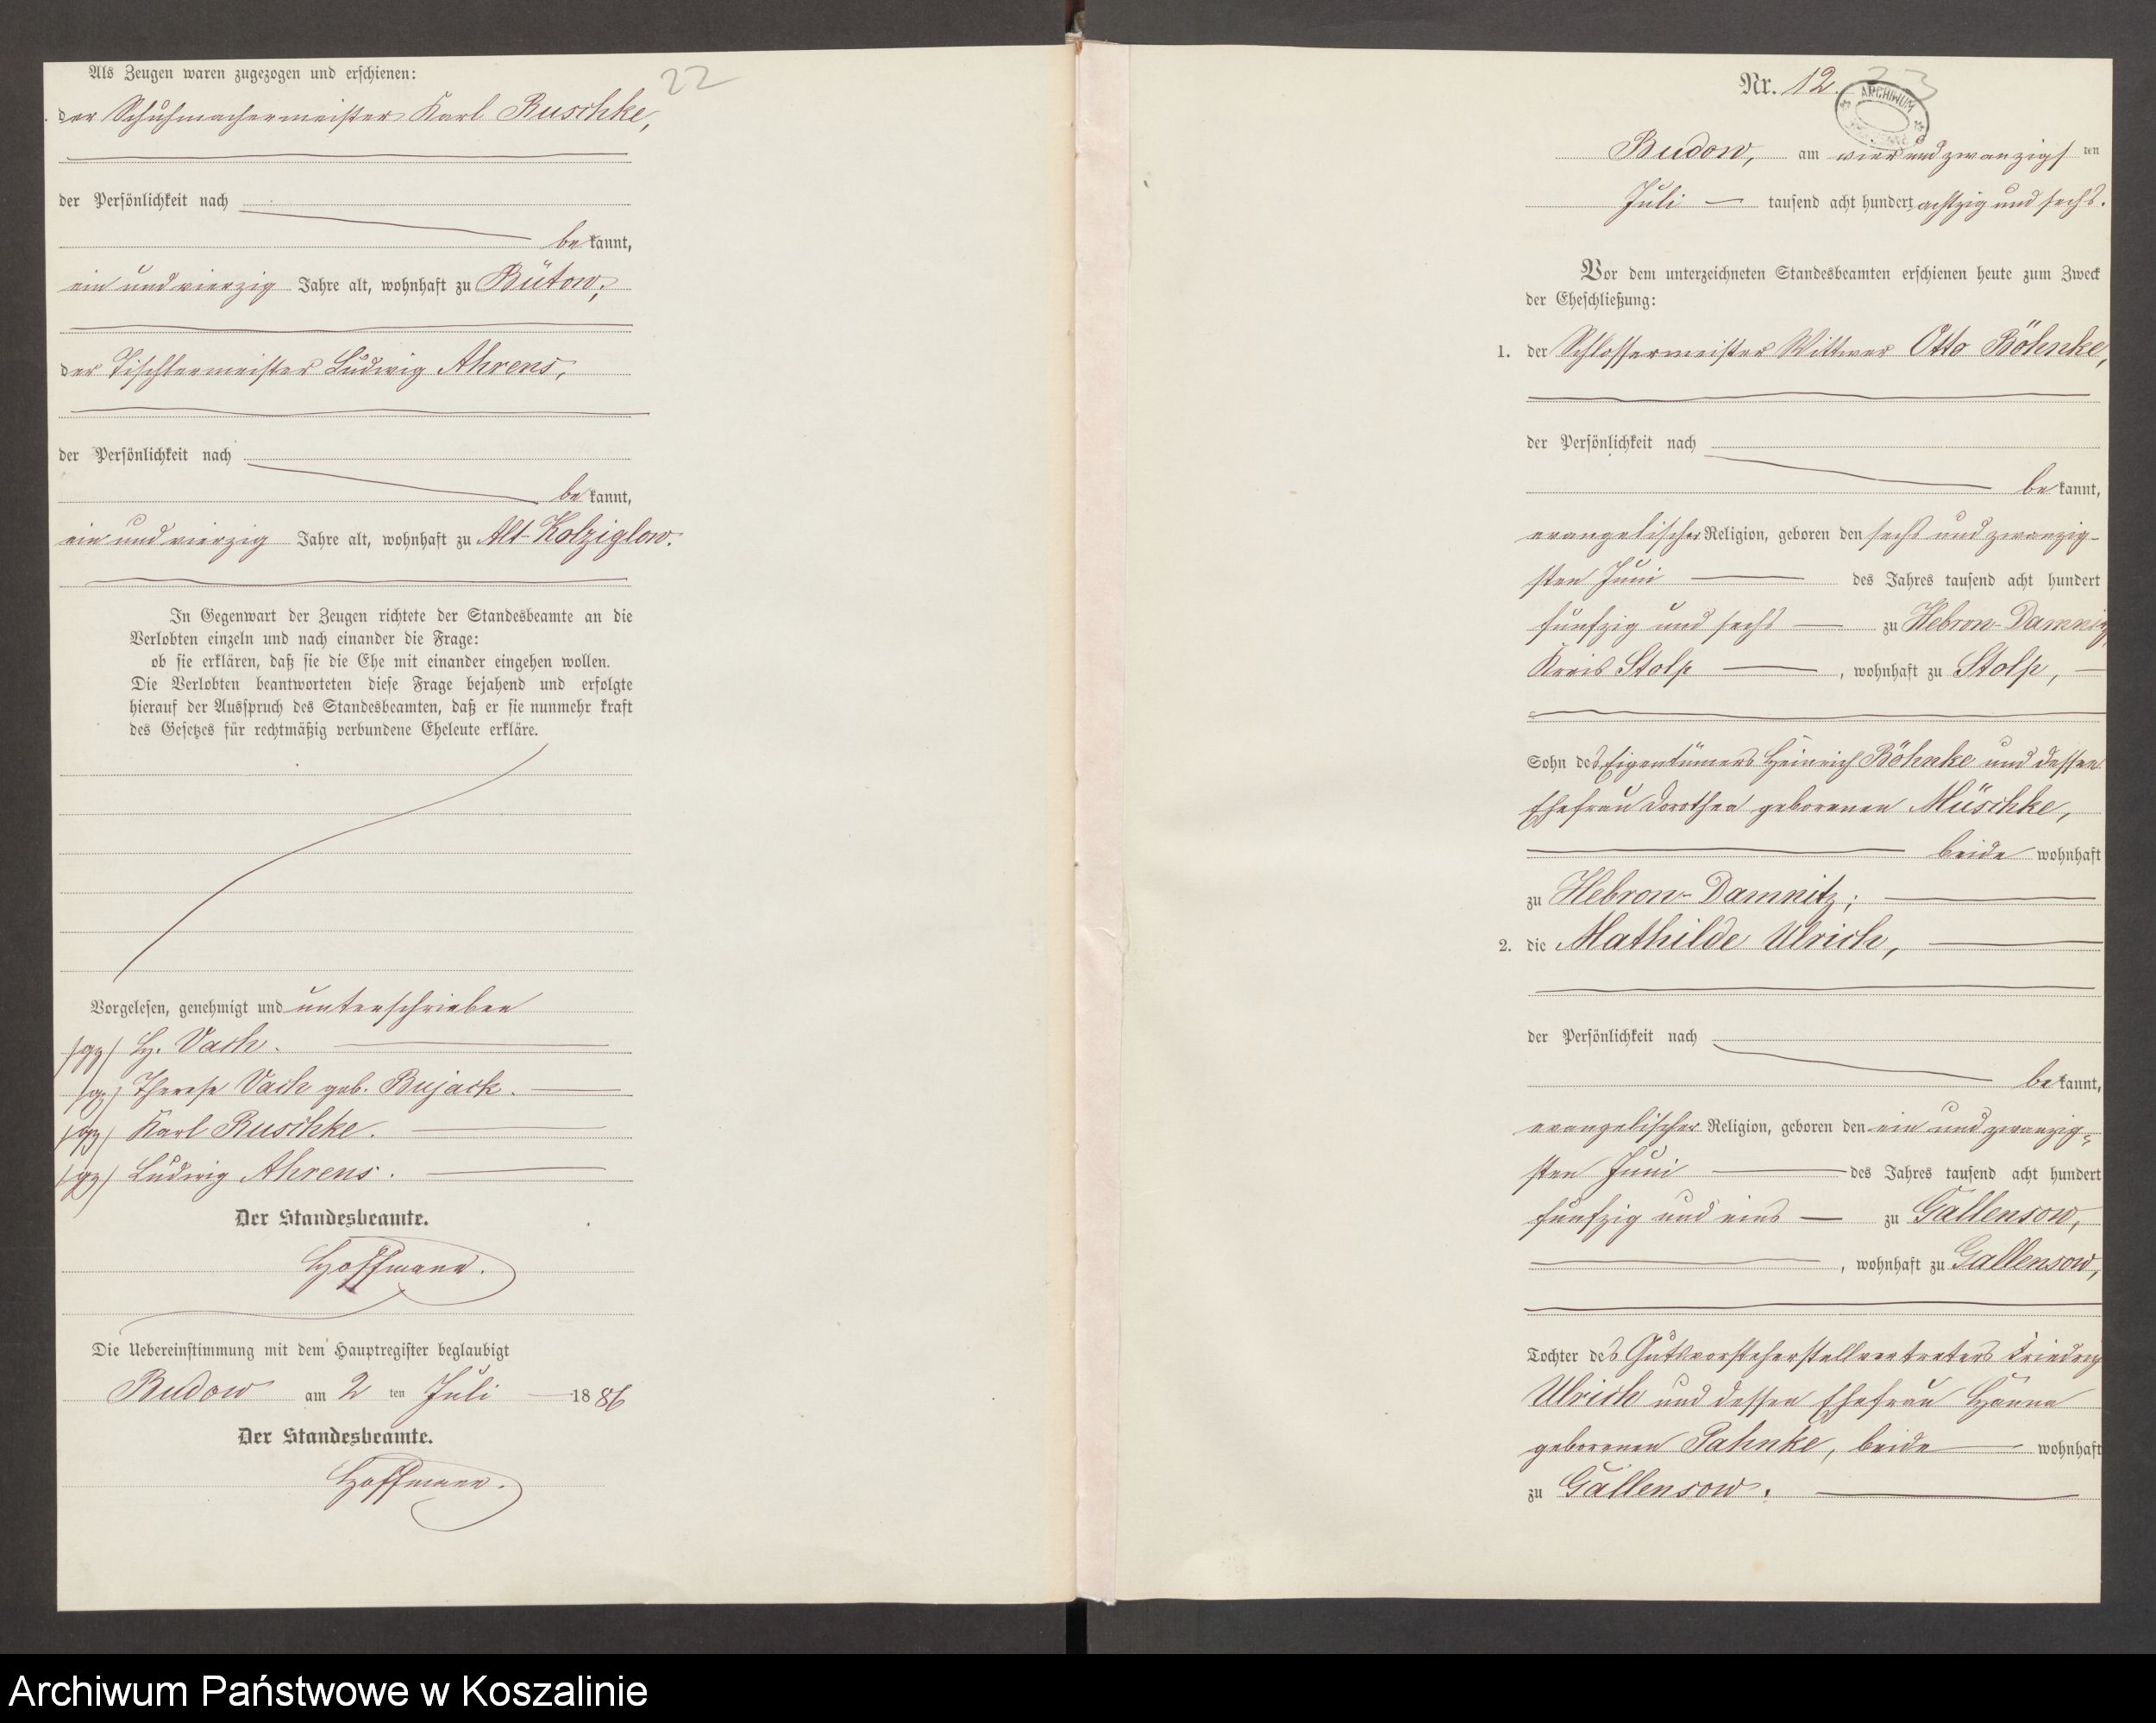 22
Als Zeugen waren zugezogen und erschienen:
der Schuhmachermeister Karl Ruschke,
der Persönlichkeit nach
be kannt,
ein und vierzig Jahre alt, wohnhaft zu Bütow;
der Tischlermeister Ludwig Ahrens,
der Persönlichkeit nach
be kannt,
ein und vierzig Jahre alt, wohnhaft zu Alt-Kolziglow.
In Gegenwart der Zeugen richtete der Standesbeamte an die
Verlobten einzeln und nach einander die Frage:
ob sie erklären, daß sie die Ehe mit einander eingehen wollen.
Die Verlobten beantworteten diese Frage bejahend und erfolgte
hierauf der Ausspruch des Standesbeamten, daß er sie nunmehr kraft
des Gesetzes für rechtmäßig verbundene Eheleute erkläre.
Vorgelesen, genehmigt und unterschrieben
/gz/ H. Vach.
/gz/ Therese Vach geb. Bujack.
/gz/ Karl Ruschke.
/gz/ Ludwig Ahrens.
Der Standesbeamte.
Hoffmann.
Die Uebereinstimmung mit dem Hauptregister beglaubigt
Budow am 2 ten Juli 18 86
Der Standesbeamte.
Hoffmann.
Nr. 12.
23
ARCHIWUM
Budow, am vier und zwanzigs ten
Juli tausend acht hundert achtzig und sechs.
Vor dem unterzeichneten Standesbeamten erschienen heute zum Zweck
der Eheschließung:
1. der Schlossermeister Wittwer Otto Böhnke,
der Persönlichkeit nach
be kannt,
evangelischer Religion, geboren den sechs und zwanzig-
sten Juni des Jahres tausend acht hundert
fünfzig und sechs zu Hebron-Damnitz,
Kreis Stolp, wohnhaft zu Stolp,
Sohn des Eigentümers Heinrich Böhnke und dessen
Ehefrau Dorothea geborenen Müschke,
beide wohnhaft
zu Hebron-Damnitz;
2. die Mathilde Ulrich,
der Persönlichkeit nach
be kannt,
evangelischer Religion, geboren den ein und zwanzig-
sten Juni des Jahres tausend acht hundert
fünfzig und eins zu Gallensow,
, wohnhaft zu Gallensow,
Tochter des Gutsvorsteherstellvertreters Friedrich
Ulrich und dessen Ehefrau Hanna
geborenen Pahnke, beide wohnhaft
zu Gallensow.
Archiwum Państwowe w Koszalinie